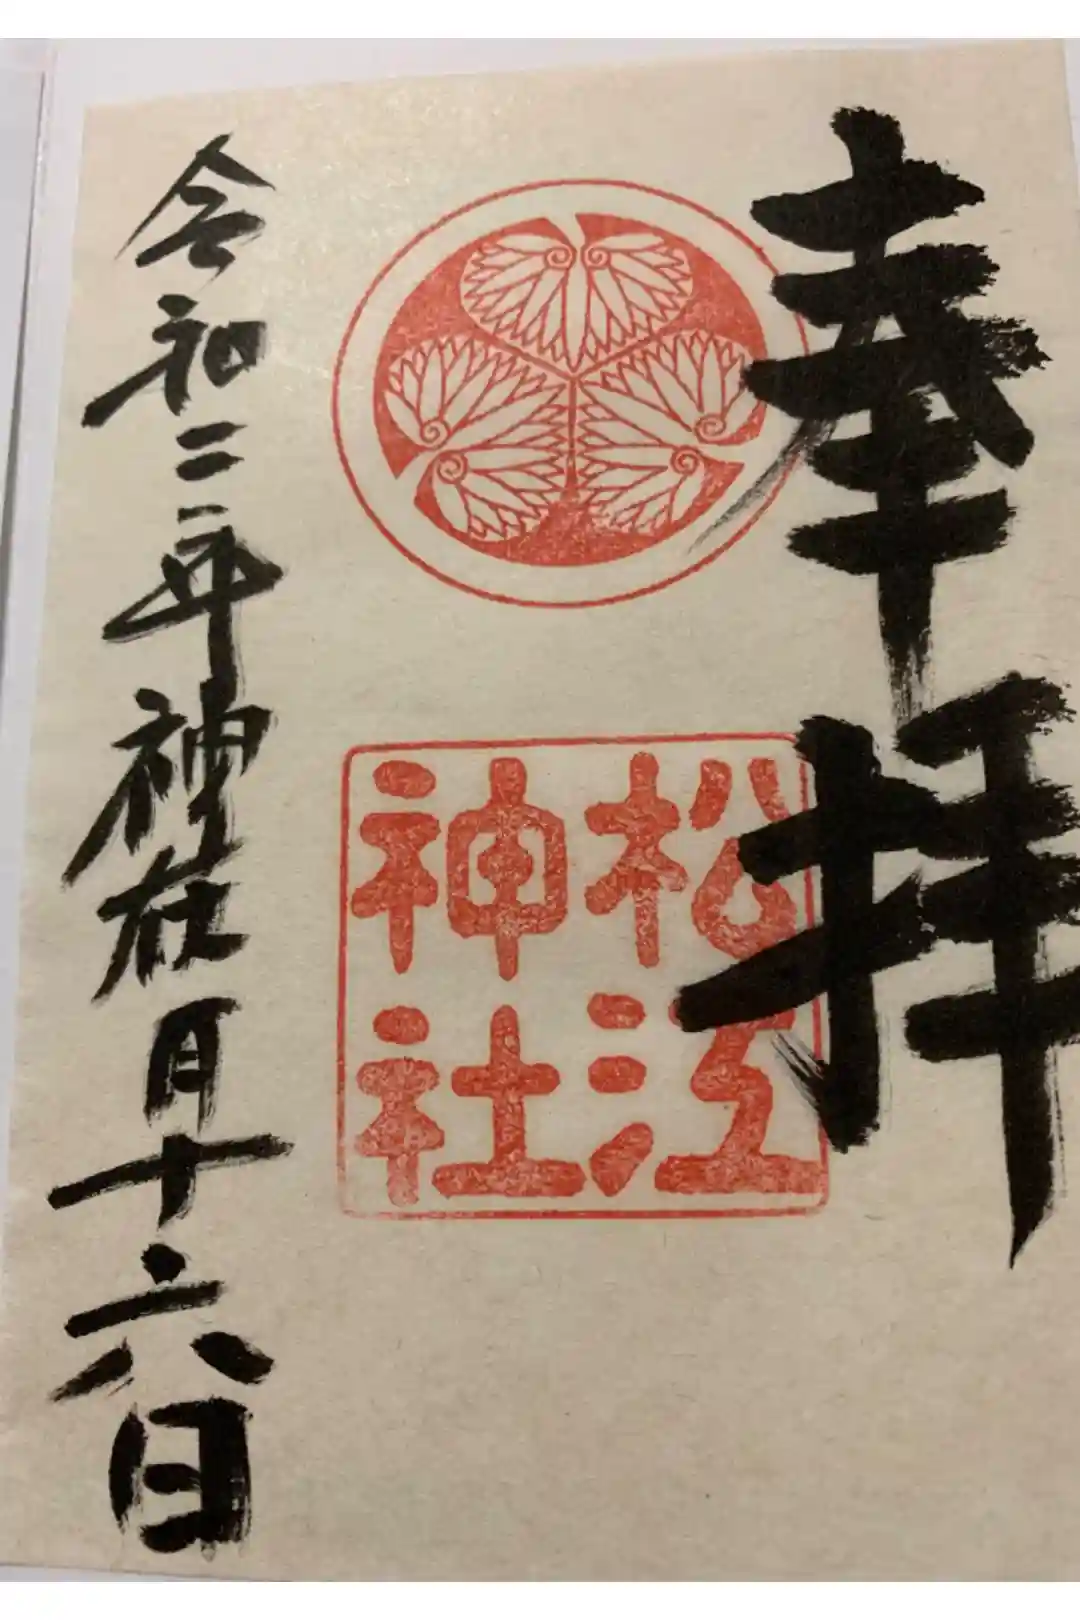 奉拝
松江
神社
令和二年神在月十六日